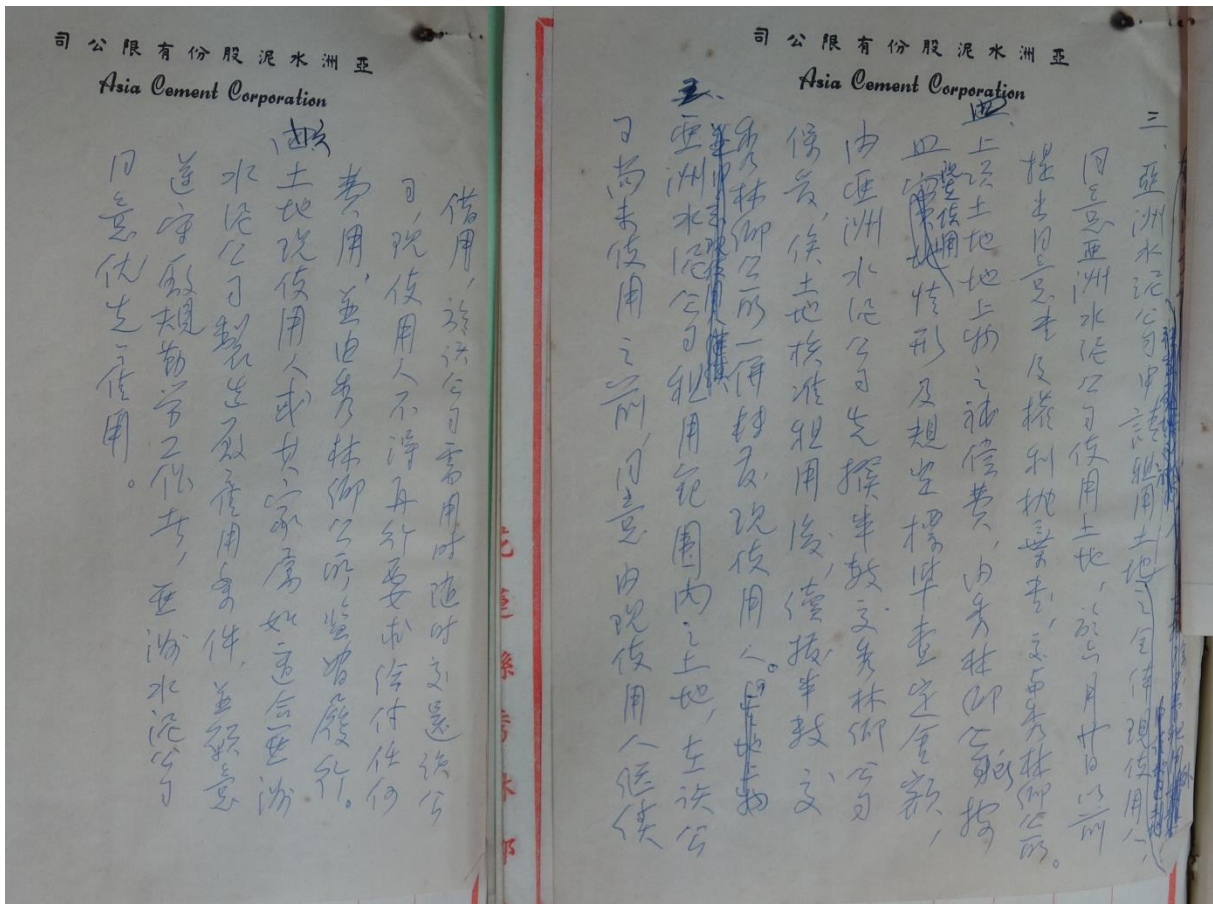 亞洲水泥股份有限公司
Asia Cement Corporation
三、亞洲水泥公司申請租用土地之全体現使用人、
同意亞洲水泥公司使用土地，於六月廿日以前
提出同意書及權利拋棄書，交由秀林鄉公所。
四、上項土地地上物之補償費，由秀林鄉公所按
照墾使用情形及規定標準查定金額，
由亞洲水泥公司先撥半數交秀林鄉公所
保管，俟土地核准租用後，續撥半數交
秀林鄉公所一併轉發現使用人。
五、亞洲水泥公司租用範圍內之土地，在該公
司尚未使用之前，同意由現使用人繼續
亞洲水泥股份有限公司
Asia Cement Corporation
借用，於該公司需用時隨時交還該公
司，現使用人不得再行要求給付任何
費用，並由秀林鄉公所監督履行。
六、土地現使用人或其家屬如適合亞洲
水泥公司製造廠雇用條件，並願意
遵守廠規勤勞工作者，亞洲水泥公司
同意優先雇用。
花蓮縣秀林鄉